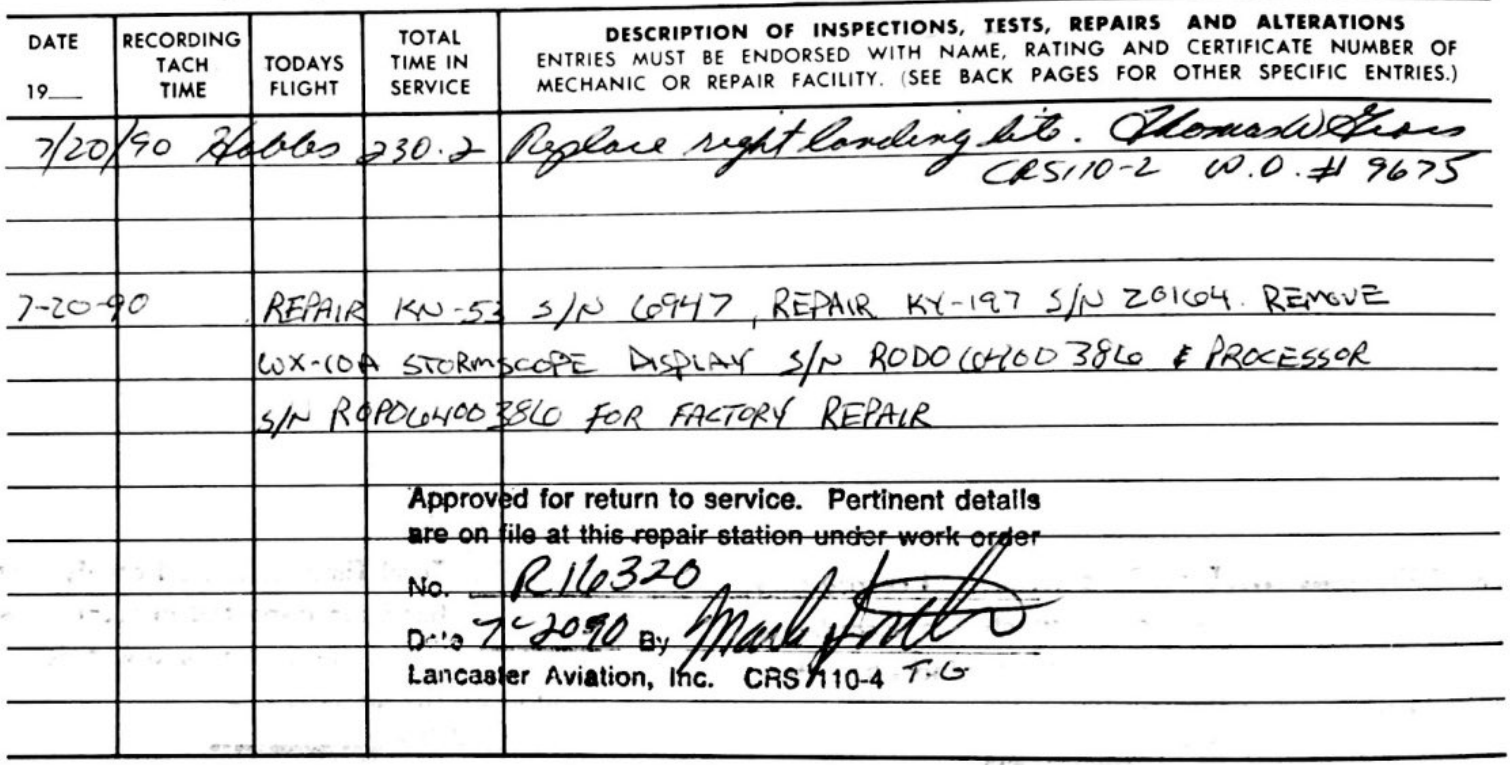 DATE
19__
RECORDING
TACH
TIME
TODAYS
FLIGHT
TOTAL
TIME IN
SERVICE
DESCRIPTION OF INSPECTIONS, TESTS, REPAIRS AND ALTERATIONS
ENTRIES MUST BE ENDORSED WITH NAME, RATING AND CERTIFICATE NUMBER OF
MECHANIC OR REPAIR FACILITY. (SEE BACK PAGES FOR OTHER SPECIFIC ENTRIES.)
7/20/90 Hobbs 230.2 Replace right landing lite. Thomas W
CRS110-2 W.O. # 9675
7-20-90 REPAIR KN-53 S/N 6947, REPAIR KY-197 S/N 20164. REMOVE
WX-10A STORMSCOPE DISPLAY S/N & PROCESSOR
S/N FOR FACTORY REPAIR
Approved for return to service. Pertinent details
are on file at this repair station under work order
No. R16320
Date 7-2090 By Mark
Lancaster Aviation, Inc. CRS 110-4 T-G